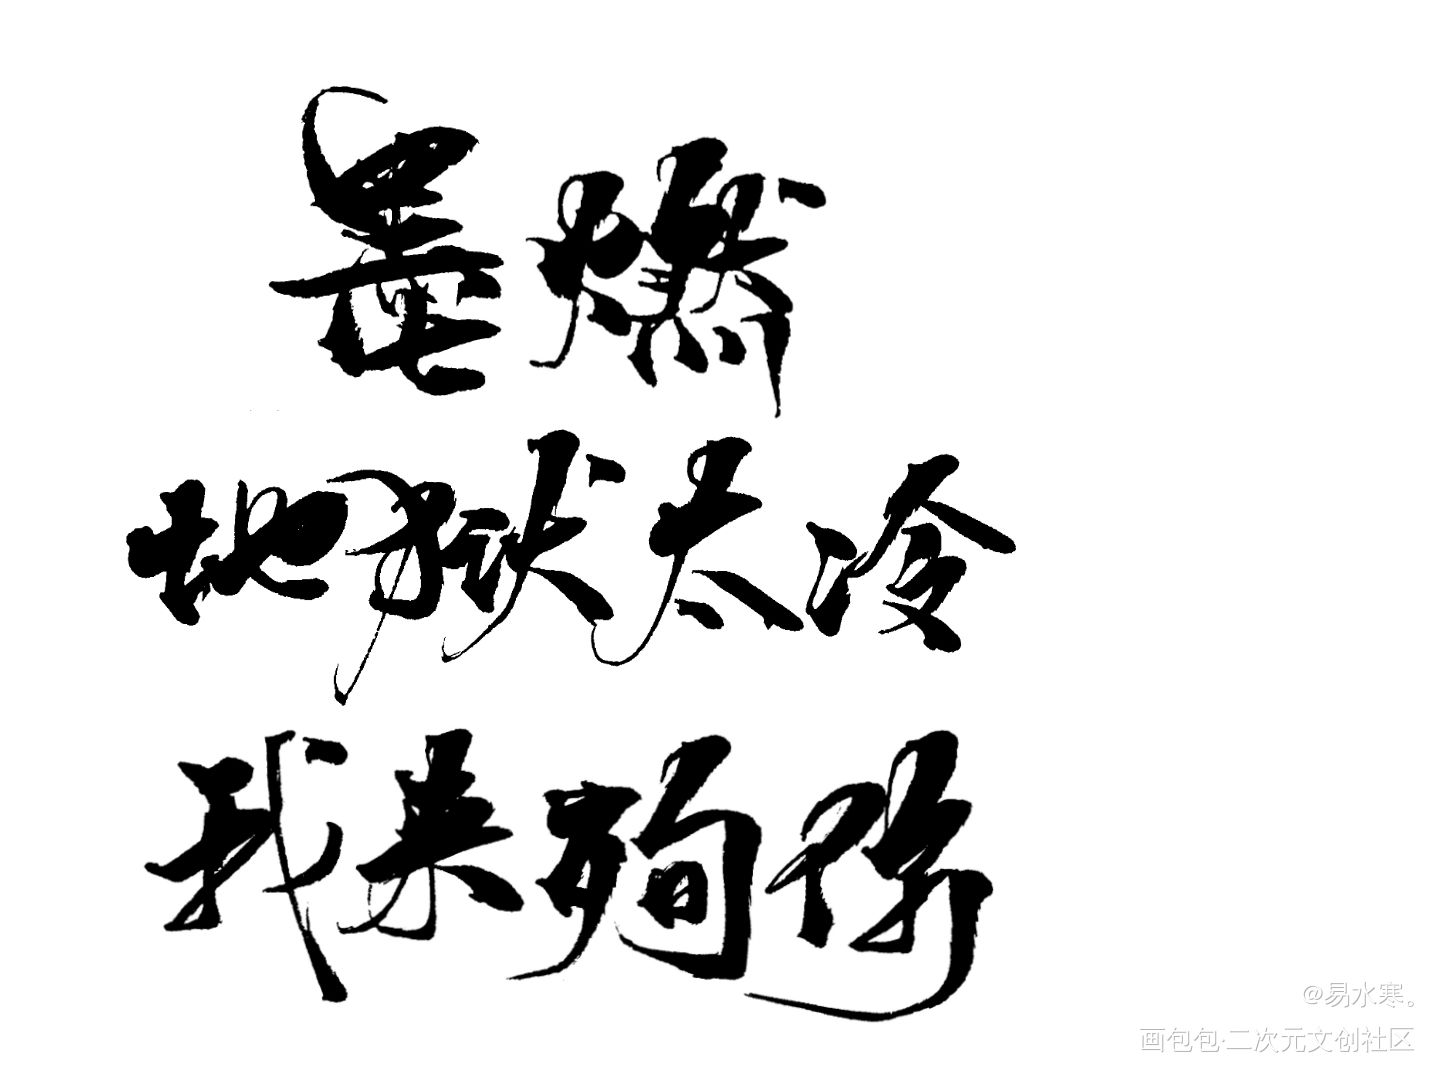 墨燃
地狱太冷
我来殉你
@易水寒。
画包包·二次元文创社区